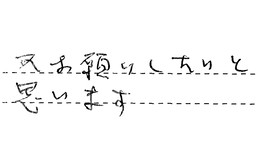 又お願いしたいと
思います